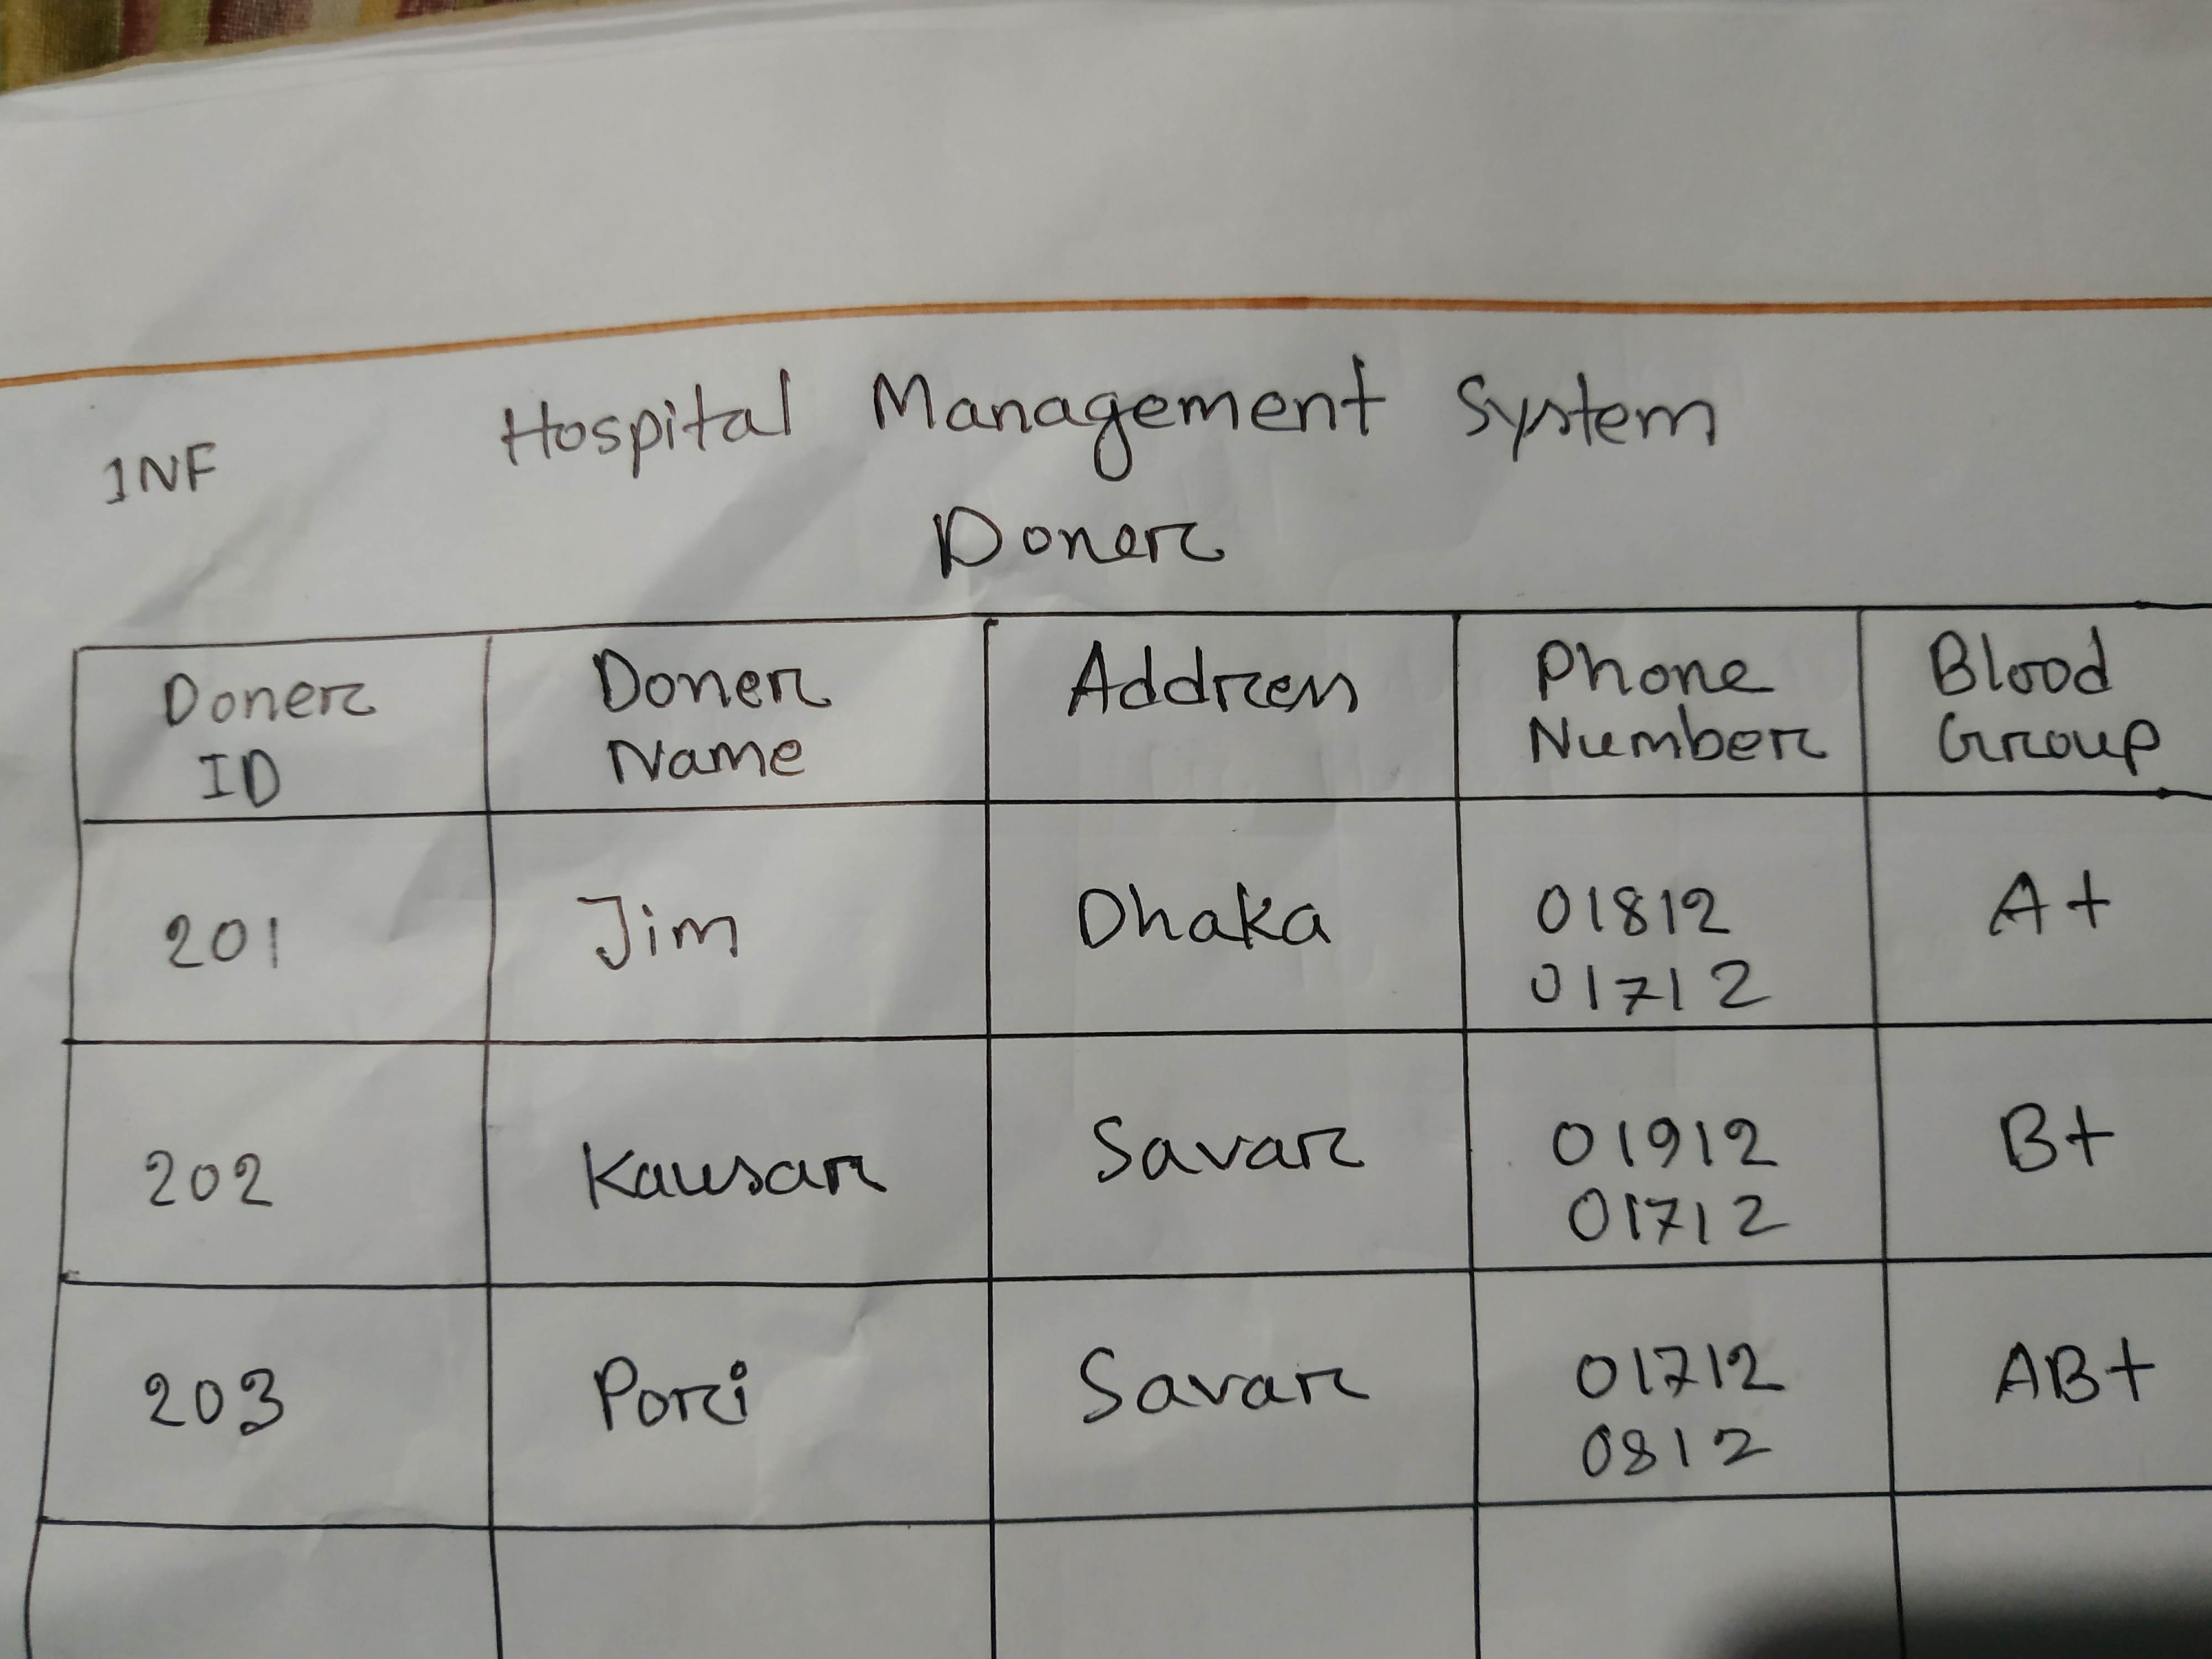 Hospital Management System
1NF
Doner
Doner ID | Doner Name | Address | Phone Number | Blood Group
201 | Jim | Dhaka | 01812 01712 | A+
202 | Kausar | Savar | 01912 01712 | B+
203 | Pori | Savar | 01712 0812 | AB+